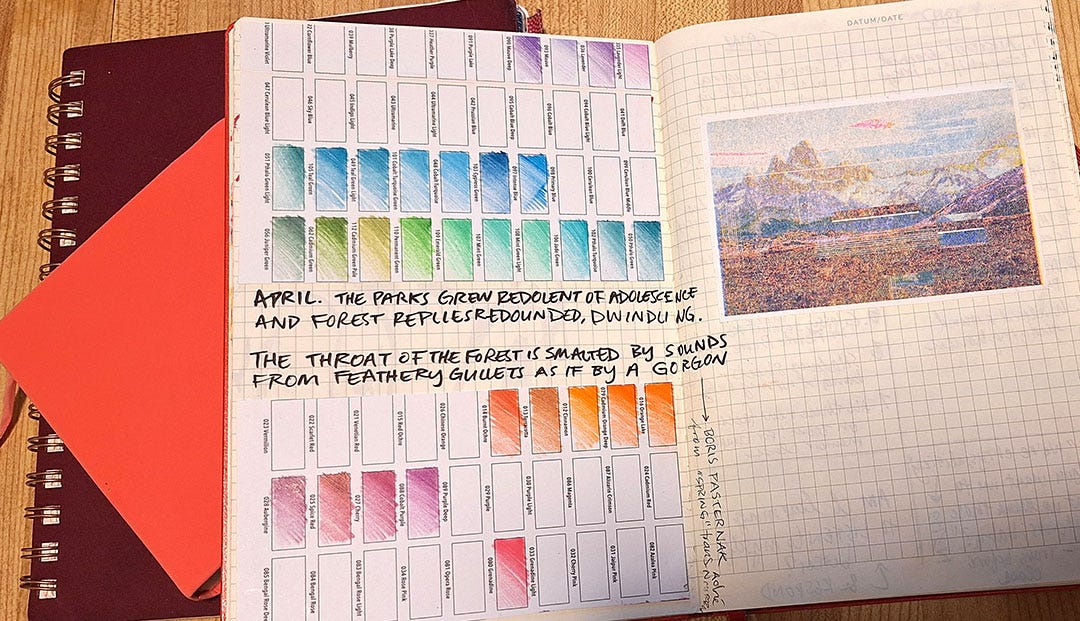 DATUM/DATE
Ultramarine Violet
Cornflower Blue
039 Mulberry
Purple Lake Deep
Heather Purple
091 Purple Lake
090 Mauve Deep
092 Mauve
036 Lavender
035 Lavender Light
047 Cerulean Blue Light
046 Sky Blue
045 Indigo Light
043 Ultramarine
044 Ultramarine Light
042 Prussian Blue
095 Cobalt Blue Deep
096 Cobalt Blue
094 Cobalt Blue Light
041 Delft Blue
Green Light
105 Teal Green
049 Teal Green Light
101 Cobalt Turquoise
048 Cobalt Turquoise
103 Cypress Green
097 Intense Blue
098 Primary Blue
100 Cerulean Blue
099 Cerulean Blue Middle
056 Juniper Green
062 Cadmium Green
112 Cadmium Green Pale
110 Permanent Green
109 Emerald Green
107 Mint Green
108 Mint Green Light
106 Jade Green
Turquoise
Green
APRIL. THE PARKS GREW REDOLENT OF ADOLESCENCE
AND FOREST REPLIES REDOUNDED, DWINDLING.
THE THROAT OF THE FOREST IS SMALTED BY SOUNDS
FROM FEATHERY GULLETS AS IF BY A GORGON
→ BORIS PASTERNAK
from "SPRING" trans
023 Vermilion
022 Scarlet Red
021 Venetian Red
015 Red Ochre
026 Chinese Orange
014 Burnt Ochre
013 Terracotta
012 Cinnamon
Cadmium Orange Deep
016 Orange Lake
028 Aubergine
025 Spice Red
027 Cherry
088 Cobalt Purple
089 Purple Deep
029 Purple
030 Purple Light
086 Magenta
087 Alizarin Crimson
024 Cadmium Red
085 Bengal Rose Dee
084 Bengal Rose
083 Bengal Rose Light
034 Rose Pink
081 Opera Rose
080 Grenadine
033 Grenadine Light
032 Cherry Pink
031 Jaipur Pink
082 Azalea Pink